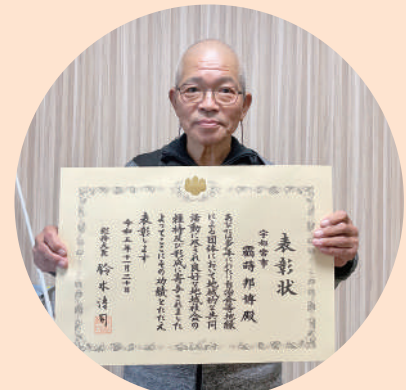 表彰状
宇都宮市
霜時邦博殿
あなたは多年にわたり自治会等地縁
による団体において地域的な共同
活動に尽され良好な地域社会の
維持及び形成に寄与されました
よってここにその功績をたたえ
表彰します
令和五年十一月二十日
総務大臣 鈴木淳司